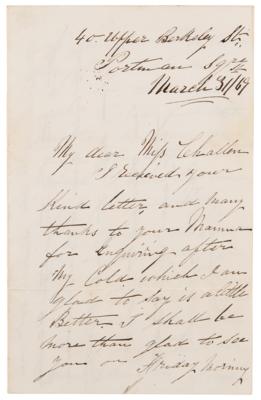 40 Upper Berkeley St,
Portman Sqre
March 31/69
My dear Miss Challen
I received your
kind letter, and many
thanks to your Mamma
for enquiring after
My Cold which I am
glad to say is a little
Better. I shall be
more than glad to see
you on Friday Morning